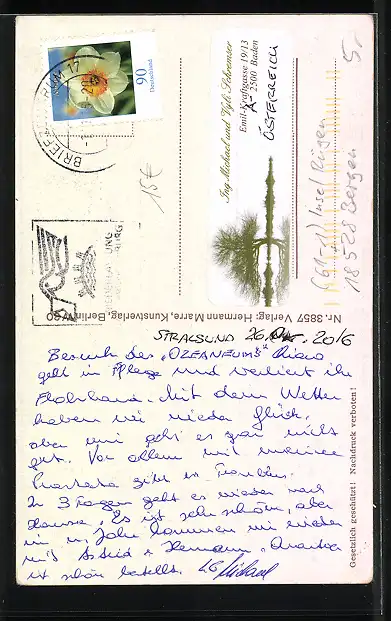 Deutschland
90
BRIEF
Ing. Michael und Vyli Schremser
Emil-Kraftgasse 19/13
A- 2500 Baden
ÖSTERREICH
5,-
15€
(G1-1) Insel Rügen
18528 Bergen
Nr. 3857 Verlag: Hermann Marre, Kunstverlag, Berlin W 30
Gesetzlich geschützt! Nachdruck verboten!
STRALSUND 26. 2016
Besuch des „OZEANEUMS"
geht in Pflege und verliert ihr
Mit dem Wetter
haben wir wieder Glück,
aber mir geht es gar nicht
gut. Vor allem mit meiner
Prostata gibt es Troubles.
In 3 Tagen geht es wieder nach
Hause. Es ist sehr schön, aber
im n. Jahr kommen wir wieder
mit Astrid + Hermann. Quartier
ist schon bestellt. LG Michael